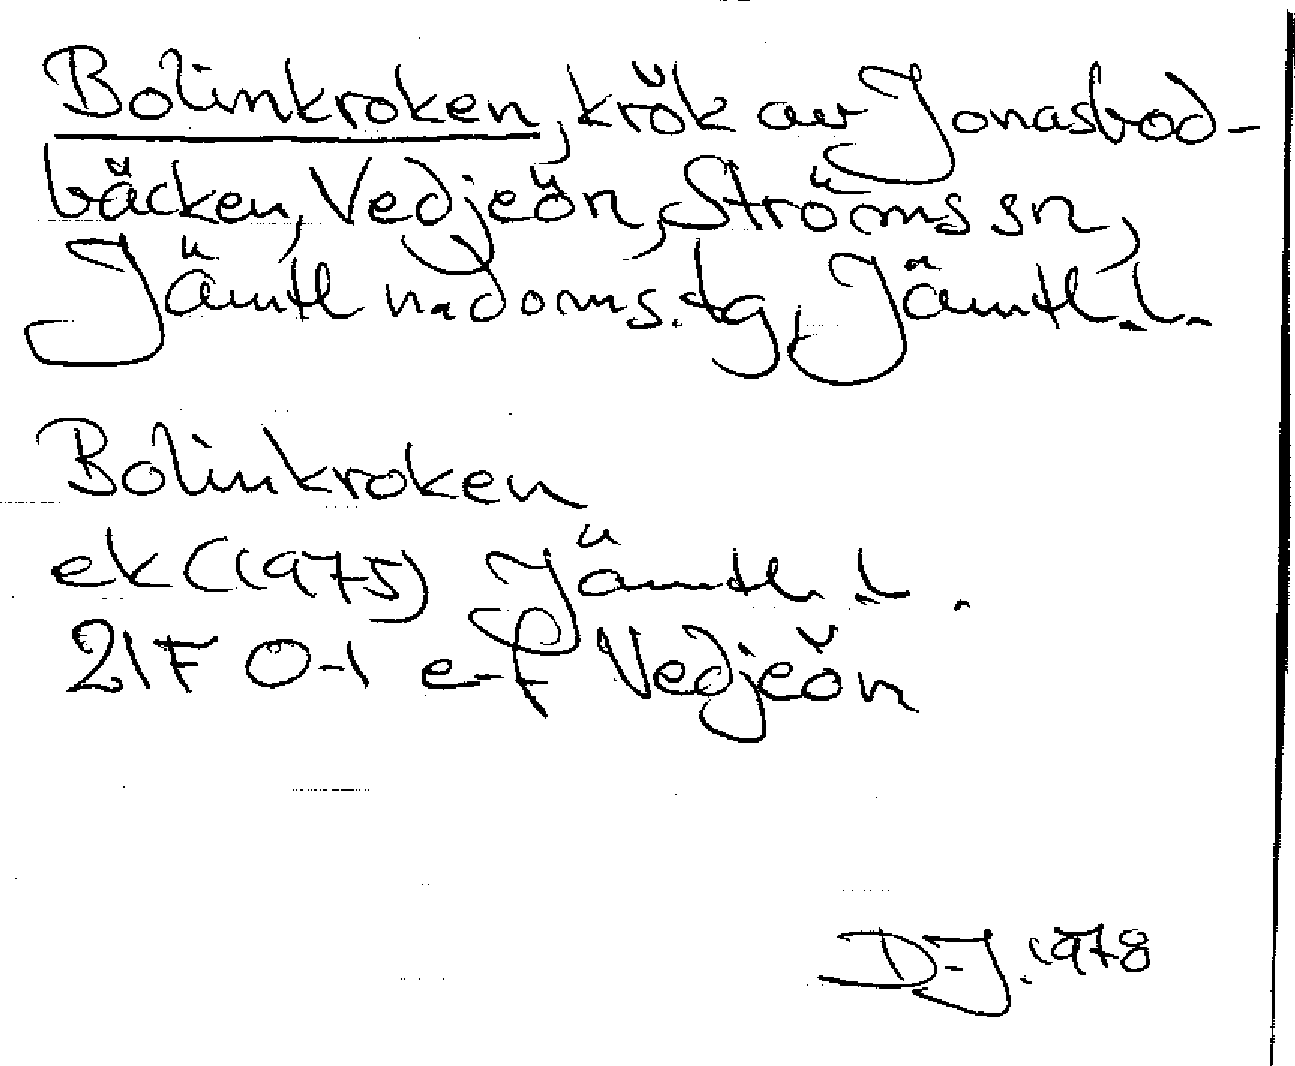 Bolinkroken, krök av Jonasbod-
bäcken, Vedjeön, Ströms sn,
Jämtl n. doms. tg, Jämtl. l.
Bolinkroken
ek (1975) Jämtl. l.
21F 0-1 e-f Vedjeön
D-J. 1978